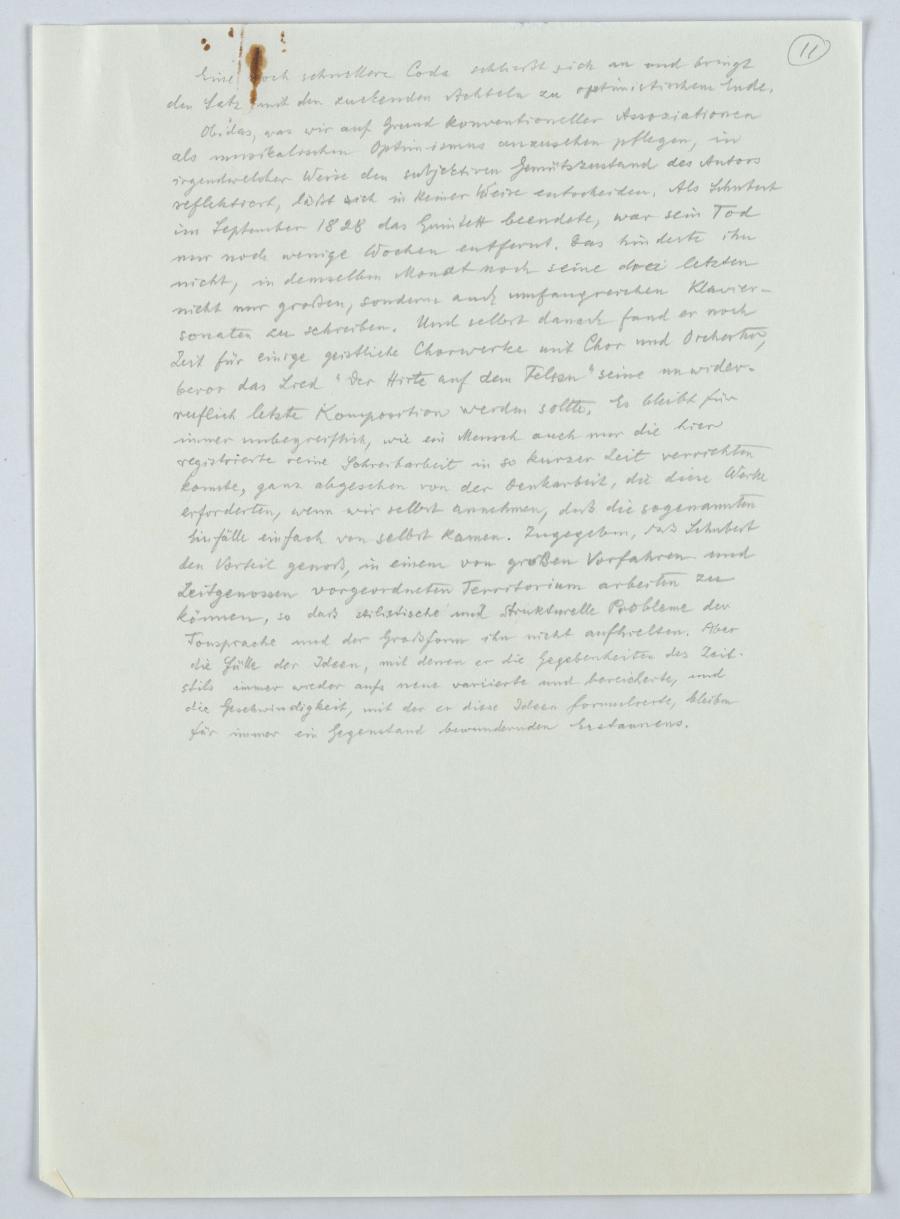 11
Eine noch schnellere Coda schließt sich an und bringt
den Satz mit den zuckenden Achteln zu optimistischem Ende.
Ob das, was wir auf Grund konventioneller Assoziationen
als musikalischen Optimismus anzusehen pflegen, in
irgendwelcher Weise den subjektiven Gemütszustand des Autors
reflektiert, läßt sich in keiner Weise entscheiden. Als Schubert
im September 1828 das Quintett beendete, war sein Tod
nur noch wenige Wochen entfernt. Das hinderte ihn
nicht, in demselben Monat noch seine drei letzten
nicht nur großen, sondern auch umfangreichen Klavier-
sonaten zu schreiben. Und selbst danach fand er noch
Zeit für einige geistliche Chorwerke mit Chor und Orchester,
bevor das Lied "Der Hirte auf dem Felsen" seine unwider-
ruflich letzte Komposition werden sollte. Es bleibt für
immer unbegreiflich, wie ein Mensch auch nur die hier
registrierte reine Schreibarbeit in so kurzer Zeit verrichten
konnte, ganz abgesehen von der Denkarbeit, die diese Werke
erforderten, wenn wir selbst annehmen, daß die sogenannten
Einfälle einfach von selbst kamen. Zugegeben, daß Schubert
den Vorteil genoß, in einem von großen Vorfahren und
Zeitgenossen vorgeordneten Territorium arbeiten zu
können, so daß stilistische und strukturelle Probleme der
Tonsprache und der Großform ihn nicht aufhielten. Aber
die Fülle der Ideen, mit denen er die Gegebenheiten des Zeit-
stils immer wieder aufs neue variierte und bereicherte, und
die Geschwindigkeit, mit der er diese Ideen formulierte, bleiben
für immer ein Gegenstand bewundernden Erstaunens.